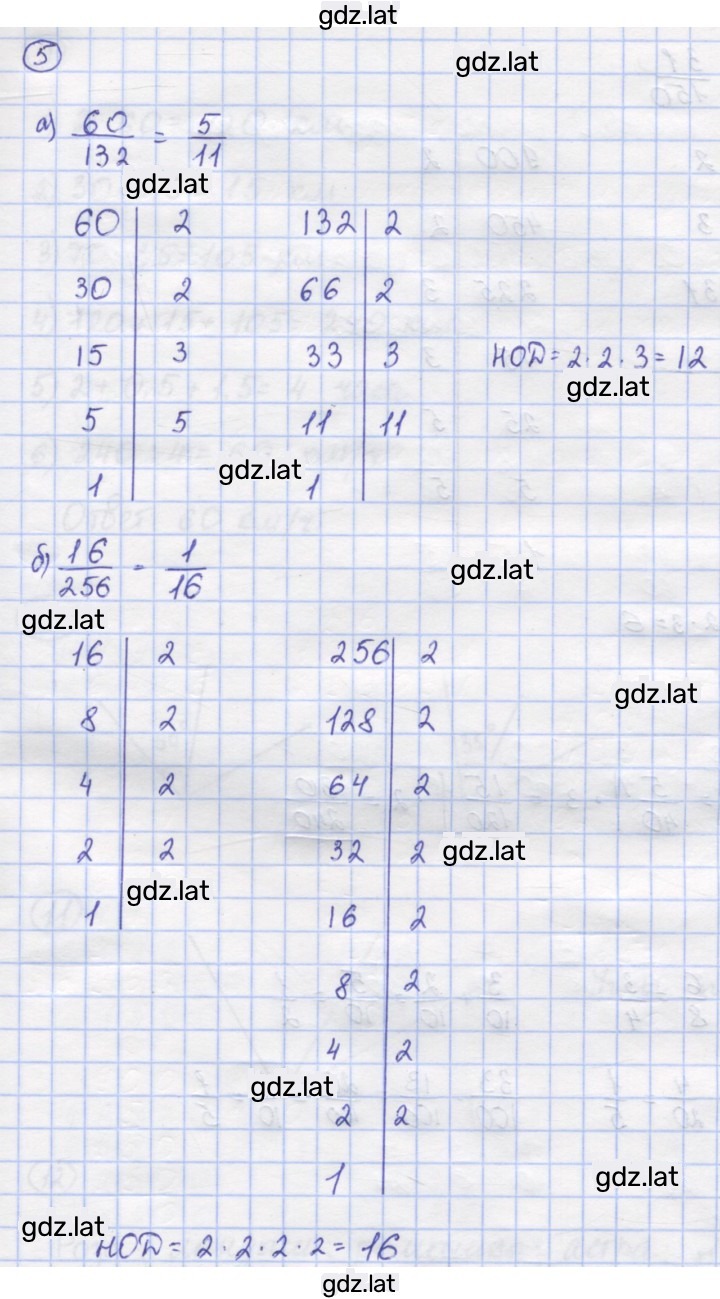 gdz.lat
5
gdz.lat
а) 60/132 = 5/11
gdz.lat
60 | 2 132 | 2
30 | 2 66 | 2
15 | 3 33 | 3 НОД = 2 · 2 · 3 = 12
gdz.lat
5 | 5 11 | 11
gdz.lat
1 | 1 |
б) 16/256 = 1/16
gdz.lat
gdz.lat
16 | 2 256 | 2
gdz.lat
8 | 2 128 | 2
4 | 2 64 | 2
2 | 2 32 | 2
gdz.lat
gdz.lat
1 | 16 | 2
8 | 2
4 | 2
gdz.lat
2 | 2
1 |
gdz.lat
gdz.lat
НОД = 2 · 2 · 2 · 2 = 16
gdz.lat